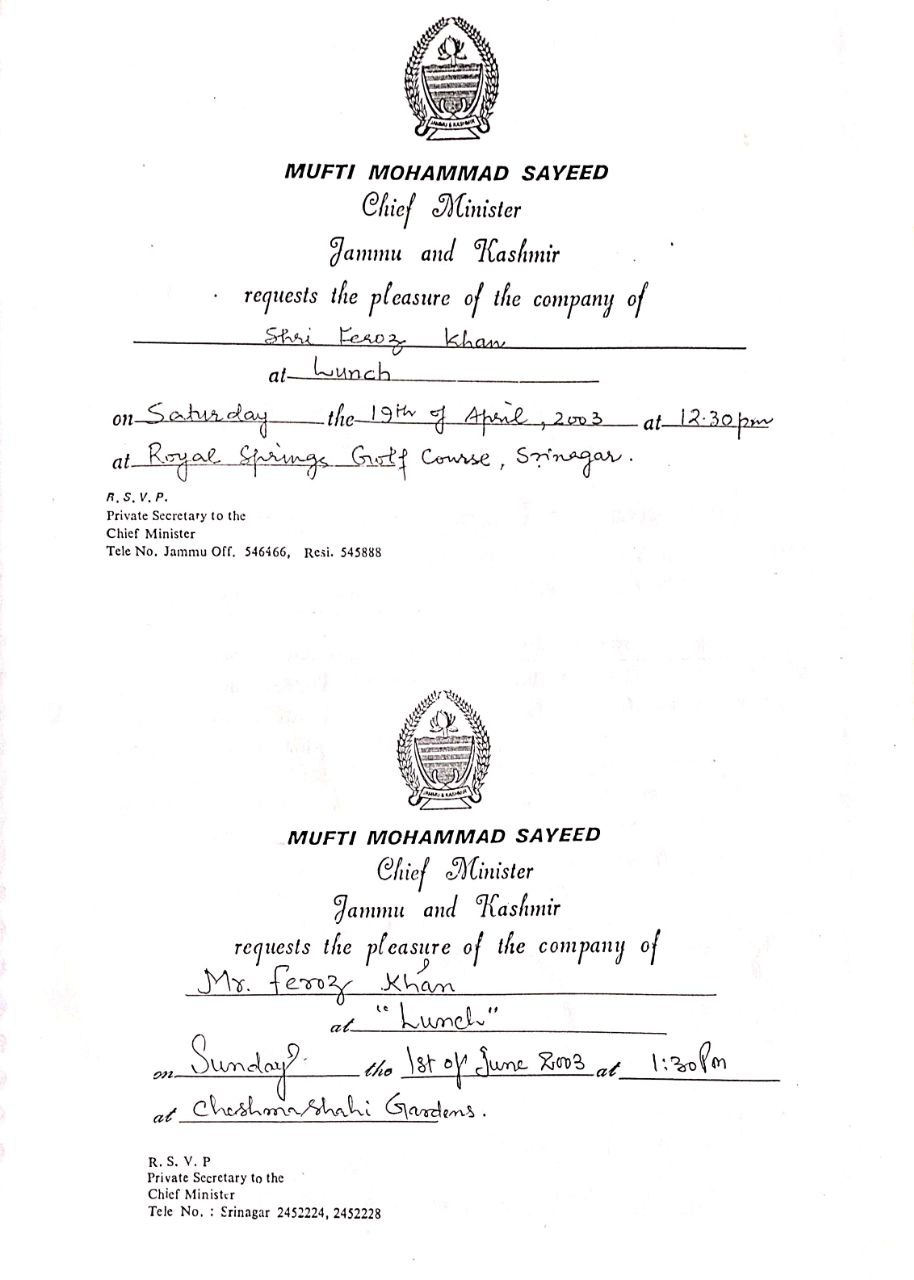 JAMMU & KASHMIR
MUFTI MOHAMMAD SAYEED
Chief Minister
Jammu and Kashmir
requests the pleasure of the company of
Shri Feroz Khan
at Lunch
on Saturday the 19th of April, 2003 at 12.30pm
at Royal Springs Golf Course, Srinagar.
R. S. V. P.
Private Secretary to the
Chief Minister
Tele No. Jammu Off. 546466, Resi. 545888
JAMMU & KASHMIR
MUFTI MOHAMMAD SAYEED
Chief Minister
Jammu and Kashmir
requests the pleasure of the company of
Mr. Feroz Khan
at "Lunch"
on Sunday. the 1st of June 2003 at 1:30Pm
at Cheshmashahi Gardens.
R. S. V. P
Private Secretary to the
Chief Minister
Tele No. : Srinagar 2452224, 2452228